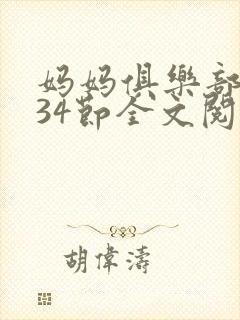 妈妈俱樂部
34節全文閱
胡偉濤